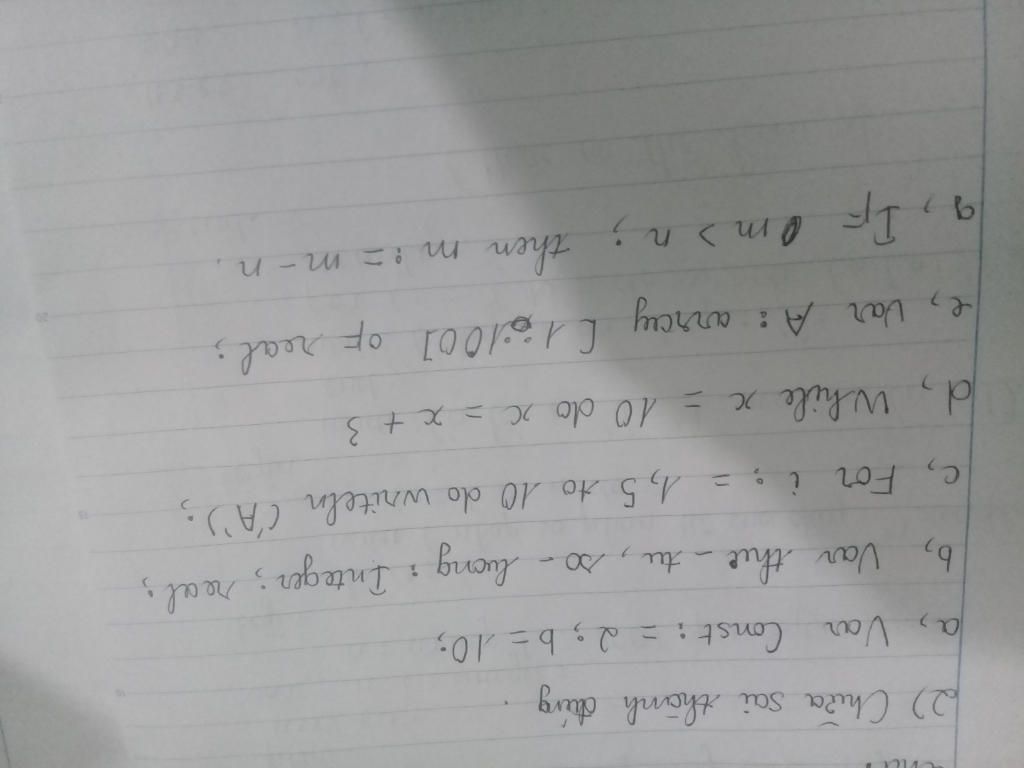 2) Chữa sai thành đúng.
a, Var Const : = 2 ; b = 10 ;
b, Var thu - tu, so - luong : Integer ; real ;
c, For i : = 1,5 to 10 do writeln ('A') ;
d, While x = 10 do x = x + 3
e, Var A : array [ 1 : 100 ] of real ;
g, If m > n ; then m : = m - n .